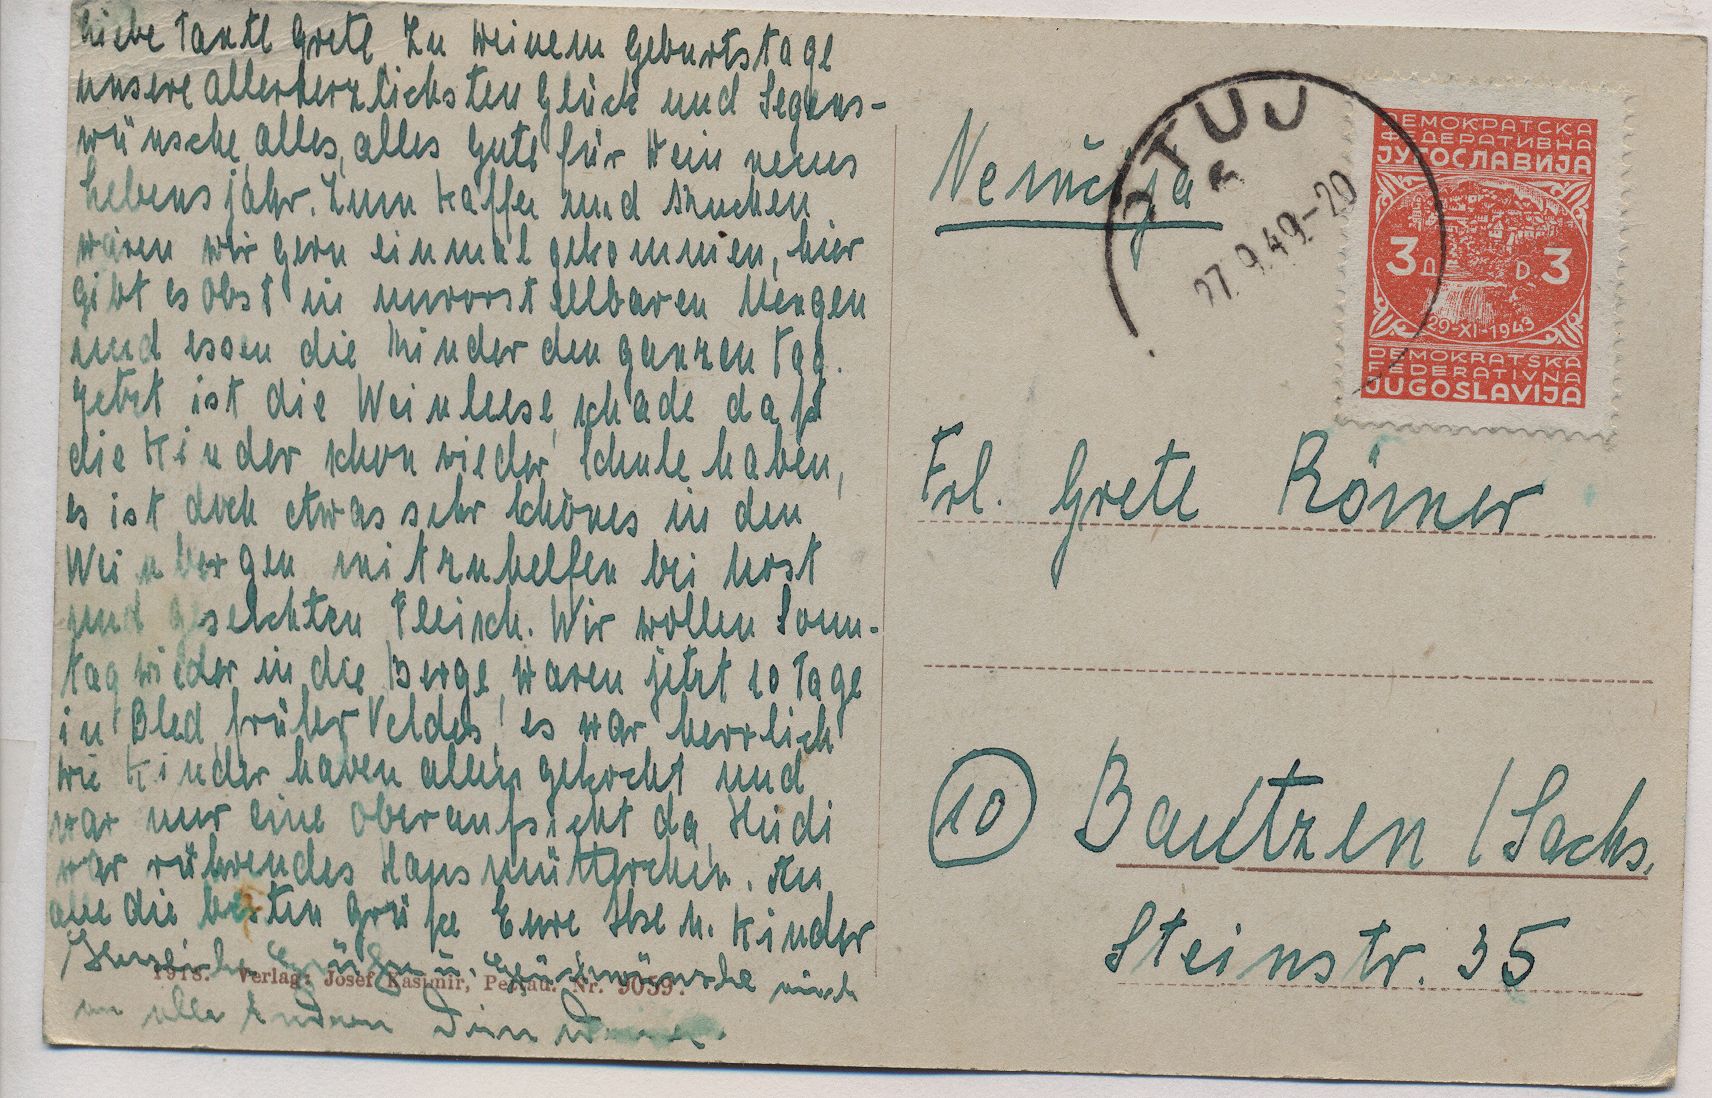 Liebe Tante Grete Zu Deinem Geburtstage
unsere allerherzlichsten Glück und Segens-
wünsche, alles, alles Gute für Dein neues
Lebensjahr. Zum Kaffee und Kuchen
wären wir gern einmal gekommen, hier
gibt es Obst in unvorstellbaren Mengen
und essen die Kinder den ganzen Tag.
Jetzt ist die Weinleese, schade daß
die Kinder schon wieder Schule haben,
es ist doch etwas sehr schönes in den
Weinbergen mitzuhelfen bei Most
und geselchten Fleisch. Wir wollen Sonn-
tag wieder in die Berge, waren jetzt 10 Tage
in Bled, früher Veldes, es war herrlich
die Kinder haben allein gekocht und
war nur eine Oberaufsicht da, Heidi
war rührendes Hausmütterchen. An
alle die besten Grüße Eure Ilse u. Kinder
Grüße u. Glückwünsche auch
an alle
1918. Verlag: Josef Kasimir, Pettau. Nr. 9059.
Nemčija
PTUJ
27.9.49.-20
ДЕМОКРАТСКА
ФЕДЕРАТИВНА
ЈУГОСЛАВИЈА
3 Д D. 3
29-XI-1943
DEMOKRATSKA
FEDERATIVNA
JUGOSLAVIJA
Frl. Grete Römer
10 Bautzen / Sachs.
Steinstr. 35